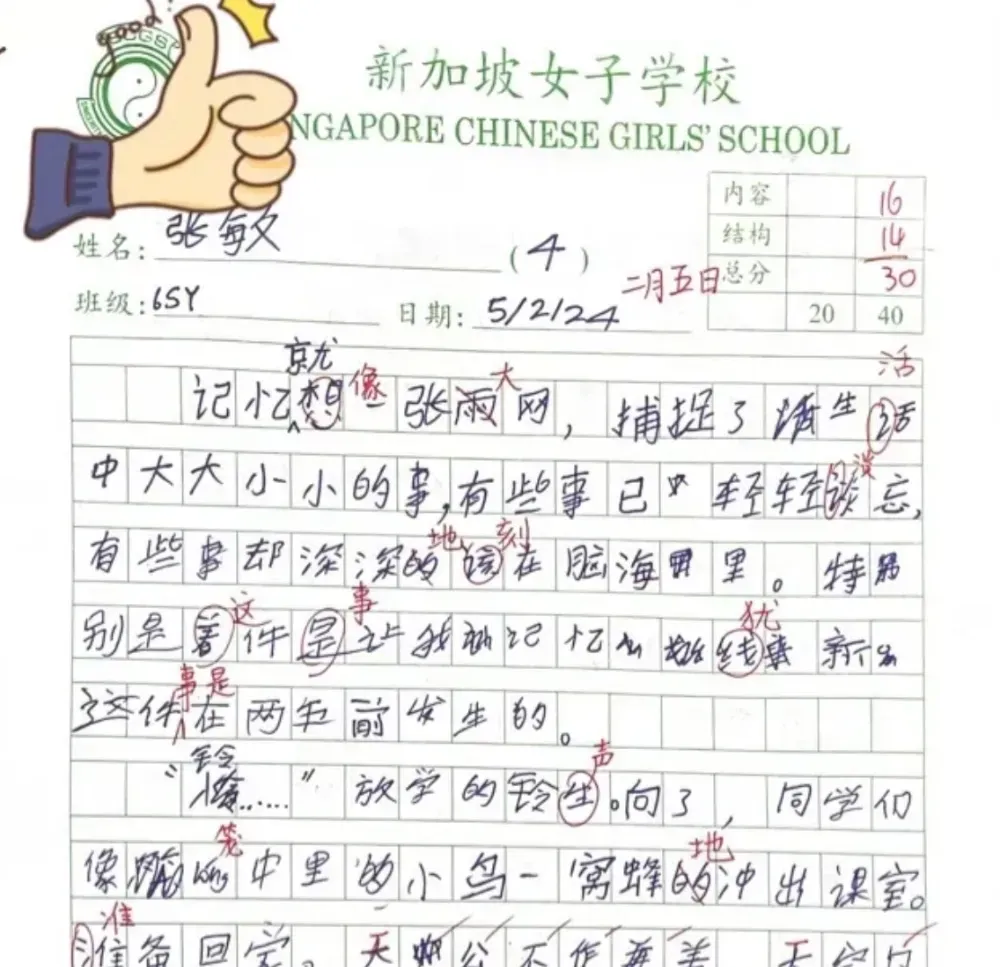 good!
SCGSP
新加坡女子学校
NGAPORE CHINESE GIRLS' SCHOOL
内容 16
结构 14
总分 30
20 40
姓名: 张敏 (4)
二月五日
班级: 6SY 日期: 5/2/24
就 像 大 活
记忆想一张雨网,捕捉了生活
淡
中大大小小的事,有些事已轻轻谈忘,
地 刻
有些事却深深的在脑海里。特
这 事 犹
别是着件是让我记忆线新
事是
这件在两年前发生的。
铃 声
“……”放学的铃生向了,同学们
笼 地
像long中里的小鸟一窝蜂的冲出课室。
准
准备回家。天公不作美